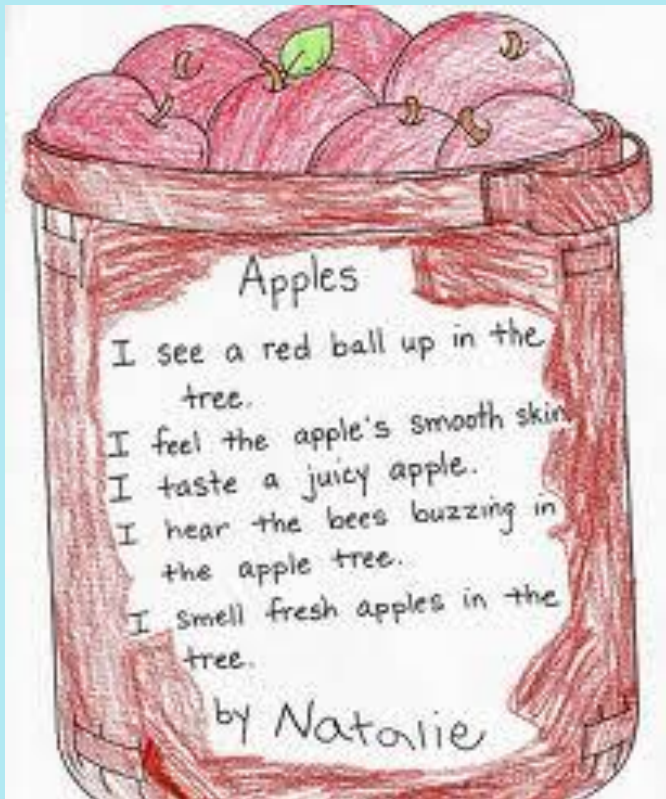 Apples
I see a red ball up in the
tree.
I feel the apple's smooth skin
I taste a juicy apple.
I hear the bees buzzing in
the apple tree.
I smell fresh apples in the
tree.
by Natalie